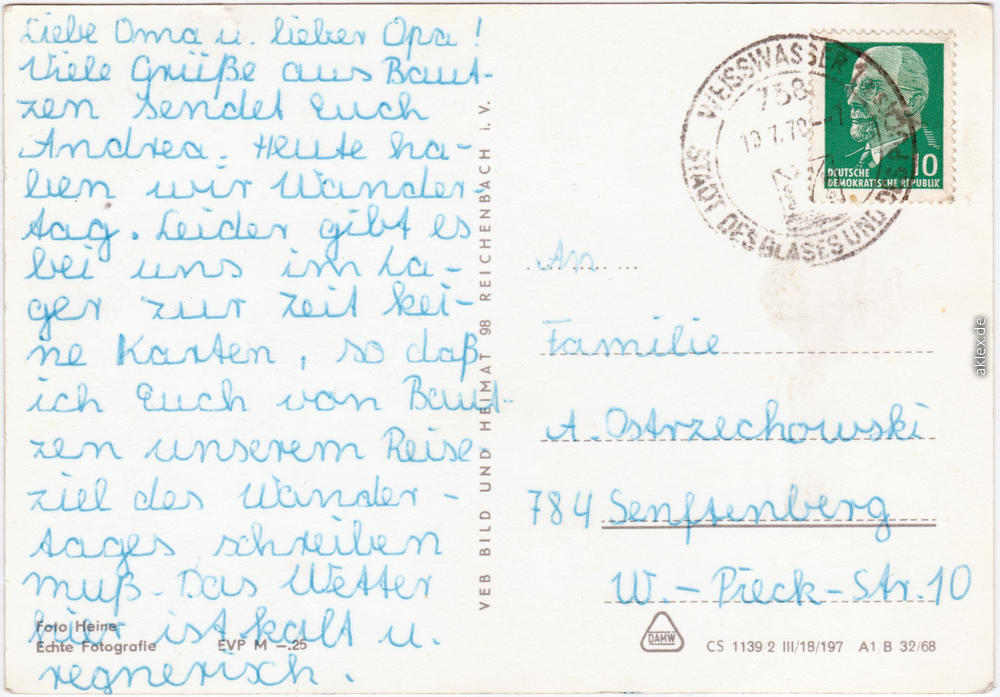 Liebe Oma u. lieber Opa!
Viele Grüße aus Baut-
zen sendet Euch
Andrea. Heute ha-
ben wir Wander-
tag. Leider gibt es
bei uns im La-
ger zur Zeit kei-
ne Karten, so daß
ich Euch von Baut-
zen unserem Reise-
ziel des Wander-
tages schreiben
muß. Das Wetter
hier ist kalt u.
regnerisch.
Foto Heine
Echte Fotografie EVP M –.25
VEB BILD UND HEIMAT 98 REICHENBACH i. V.
WEISSWASSER
758
STADT DES GLASES UND DER
10
DEUTSCHE
DEMOKRATISCHE REPUBLIK
An
Familie
A. Ostrzechowski
784 Senftenberg
W.-Pieck-Str. 10
DAMW
CS 1139 2 III/18/197 A1 B 32/68
aklex.de